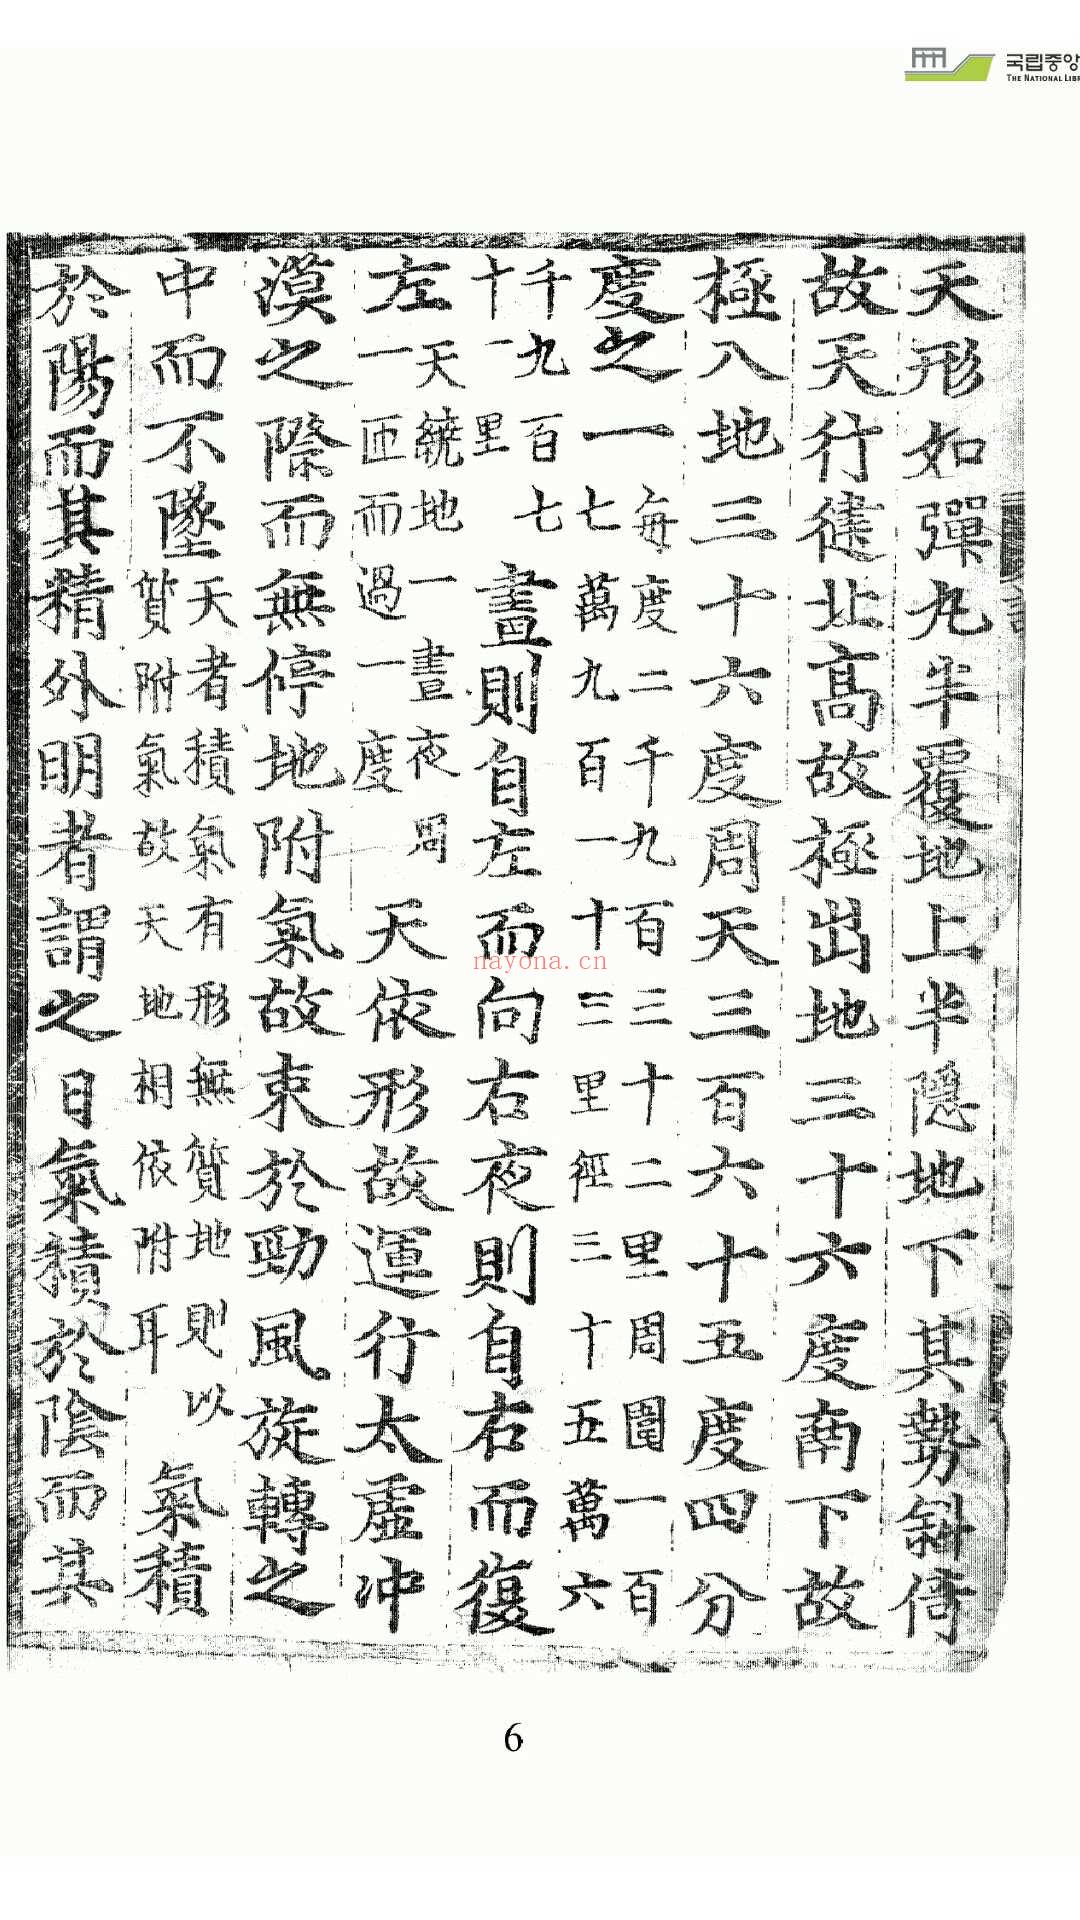 국립중앙
THE NATIONAL LIBR
天形如彈丸半覆地上半隱地下其勢斜倚
故天行健北高故極出地三十六度南下故
極入地三十六度周天三百六十五度四分
度之一每度二千九百三十二里周圍一百
七萬九百一十三里徑三十五萬六
千九百七
十一里晝則自左而向右夜則自右而復
左天繞地一晝夜周
一匝而過一度天依形故運行太虛冲
漠之際而無停地附氣故束於勁風旋轉之
中而不墜天者積氣有形無質地則以
質附氣故天地相依附耳氣積
於陽而其精外明者謂之日氣積於陰而其
nayona.cn
6